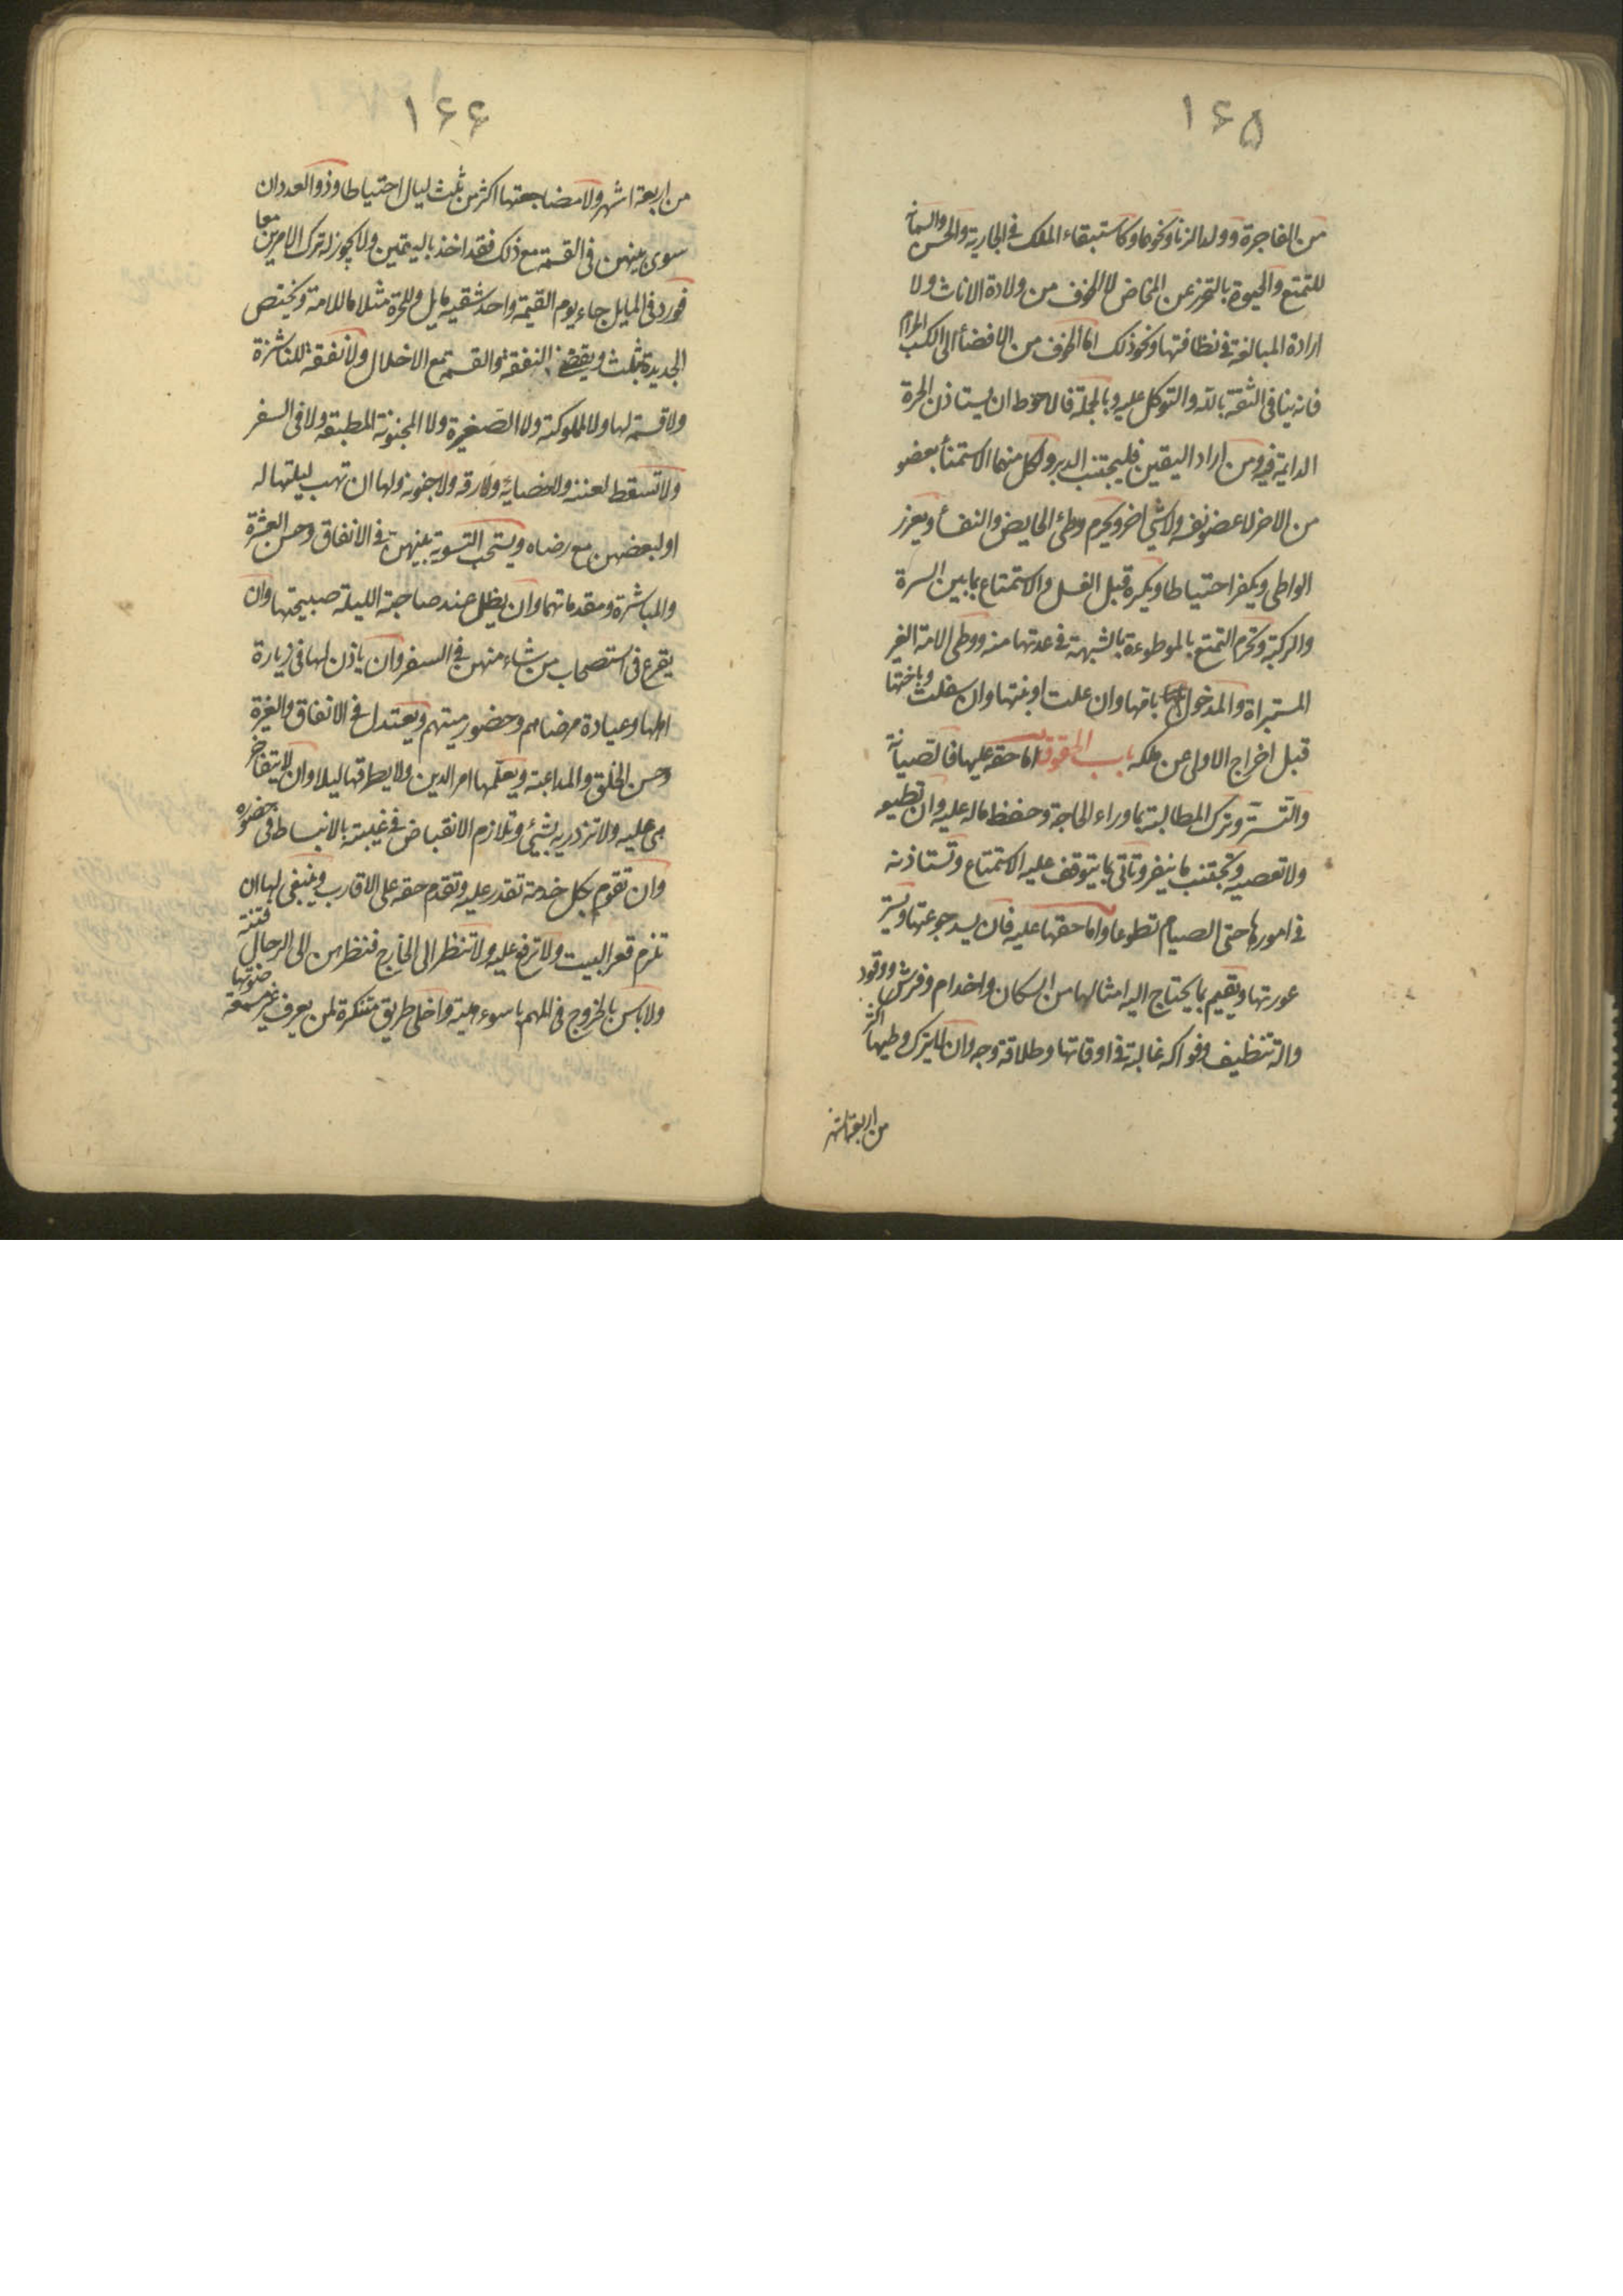 ١۶۵
من الفاجرة وولد الزنا ونحوها وكاستبقاء الملك فى الجارية والحسن والسمانة
للتمتع والحيوة بالتحرز عن المخاض لا للخوف من ولادة الاناث ولا
ارادة المبالغة فى نظافتها ونحو ذلك اما الخوف من الافضأ الى الكسب الحرام
فانه ينافى الثقة بالله والتوكل عليه وبالجملة فالاحوط ان يستاذن الحرة
الدايمة فيه ومن اراد اليقين فليجتنب الدبر ولكل منهما الاستمتأ بعضو
من الاخر لا عضو نفسه ولا شئ اخر ويحرم وطى الحايض والنفسأ ويعزر
الواطى ويكفر احتياطا ويكره قبل الغسل والاستمتاع بما بين السرة
والركبة وتحرم التمتع بالموطوءة بالشبهة فى عدتها منه ووطى الامة الغير
المستبراة والمدخول بامها وان علت او بنتها وان سفلت وباختها
قبل اخراج الاولى عن ملكه باب الحقوق اما حقه عليها فالصيانة
والتستر وترك المطالبة بما وراء الحاجة وحفظ ماله عليه وان تطيعه
ولا تعصيه وتجتنب ما ينفر وتاتى بما يتوقف عليه الاستمتاع وتستاذنه
فى امورها حتى الصيام تطوعا واما حقها عليه فان يسد جوعتها ويستر
عورتها ويقيم بما يحتاج اليه امثالها من اسكان واخدام وفرش ووقود
والة تنظيف وفواكه غالبة فى اوقاتها وطلاقة وجه وان لا يترك وطيها اكثر
من اربعة اشهر
١۶۶
من اربعة اشهر ولا مضاجعتها اكثر من ثلث ليال احتياطا وذو العدد ان
سوى بينهن فى القسمة مع ذلك فقد اخذ باليقين ولا يجوز له ترك الامرين معا
فورد فى المايل جاء يوم القيمة واحد شقيه مايل وللحرة مثلا ما للامة ويختص
الجديدة بثلث ويقضى النفقة والقسم مع الاخلال ولا نفقة للناشزة
ولا قسمة لها ولا للمملوكة ولا الصغيرة ولا المجنونة المطبقة ولا فى السفر
ولا تسقط لعننه ولا خصايه ولا رقه ولا جنونه ولها ان تهب ليلتها له
او لبعضهن مع رضاه ويستحب التسوية بينهن فى الانفاق وحسن العشرة
والمباشرة ومقدماتهما وان يظل عند صاحبة الليلة صبيحتها وان
يقرع فى استصحاب من شاء منهن فى السفر وان ياذن لها فى زيارة
اهلها وعيادة مرضاهم وحضور ميتهم ويعتدل فى الانفاق والغيرة
وحسن الخلق والمداعبة ويعلمها امر الدين ولا يطرقها ليلا وان لا يتفاخر
هى عليه ولا تزدريه بشئ وتلازم الانقباض فى غيبته بالانبساط فى حضوره
وان تقوم بكل خدمة تقدر عليه وتقدم حقه على الاقارب وينبغى لها ان
تلزم قعر البيت ولا ترفع عليه ولا تنظر الى الخارج فنظرهن الى الرجال فتنة
ولا باس بالخروج فى المهم باسوء هيئة واخلى طريق متنكرة لمن يعرف غير مسمعة صوتها